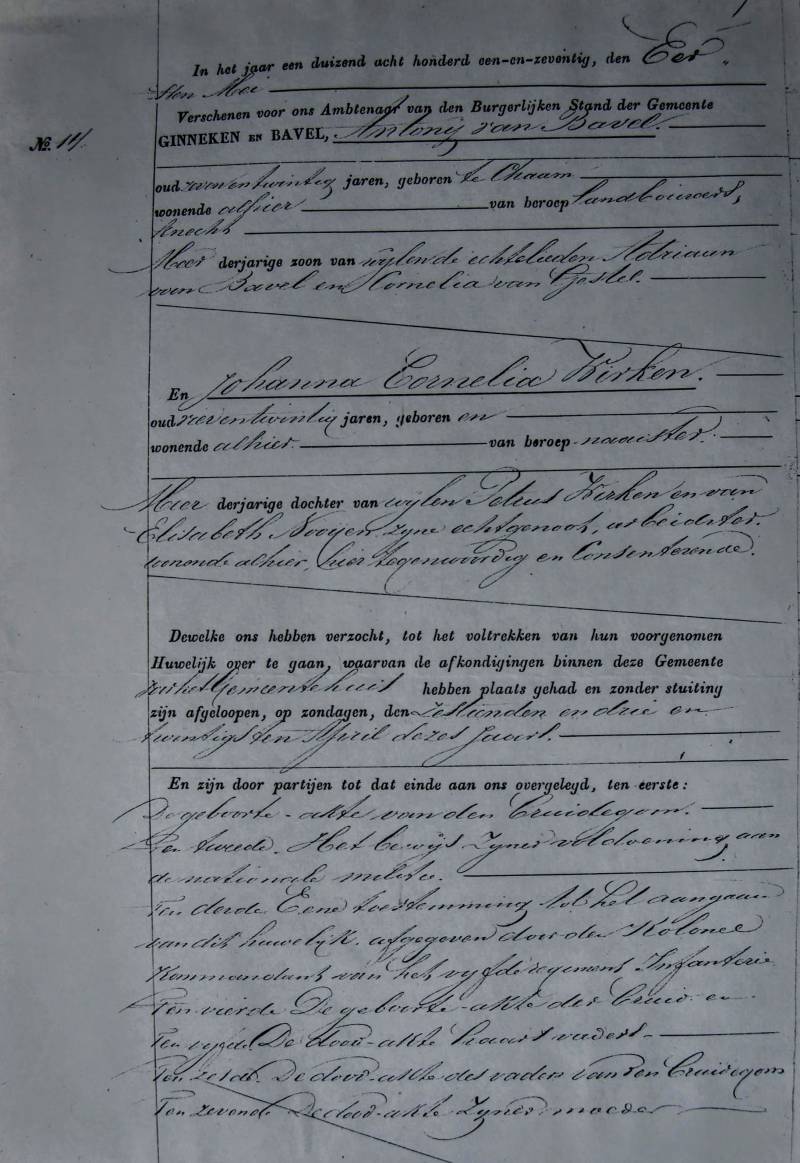 In het jaar een duizend acht honderd een-en-zeventig, den Eer
sten Mei
Verschenen voor ons Ambtenaar van den Burgerlijken Stand der Gemeente
No. 11
GINNEKEN EN BAVEL, Antonij van Bavel.
oud zevenentwintig jaren, geboren te Chaam
wonende alhier van beroep landbouwers,
knecht
Meer derjarige zoon van wijlen de echtelieden Adriaan
van Bavel en Kornelia van Gestel.
En Johanna Cornelia Kirken.
oud zevenentwintig jaren, geboren en
wonende alhier. van beroep naaister.
Meer derjarige dochter van wijlen Petrus Kirken en van
Elisabeth Nooijen, zyne echtgenoot, arbeidster.
wonende alhier, hier tegenwoordig en Consenterende.
Dewelke ons hebben verzocht, tot het voltrekken van hun voorgenomen
Huwelijk over te gaan, waarvan de afkondigingen binnen deze Gemeente
voor het Gemeentehuis hebben plaats gehad en zonder stuiting
zijn afgeloopen, op zondagen, den Zestienden en drie en
twintigsten April dezes Jaars.
En zijn door partijen tot dat einde aan ons overgelegd, ten eerste:
De geboorte-akte van den Bruidegom.
Ten tweede. Het bewijs zyner voldoening aan
de nationale militie.
Ten derde Eene toestemming tot het aangaan
van dit huwelijk. afgegeven door den Kolonel
Kommandant van het vyfde regement Infanterie
Ten vierde De geboorte-akte der Bruid en
Ten vijfde De dood-akte haars vaders
Ten zesde. De dood-akte des vaders van den Bruidegom
Ten zevende De dood-akte zyner moeder